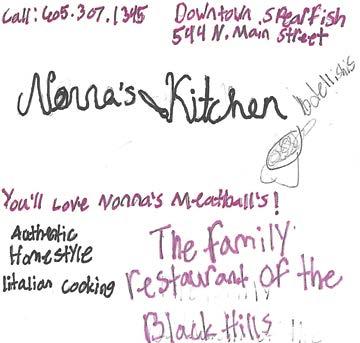 Call: 605.307.1345
Downtown Spearfish
544 N. Main Street
Nonna's Kitchen
You'll Love Nonna's Meatball's!
Authentic
Homestyle
Iitalian cooking
The family
restaurant of the
Black Hills